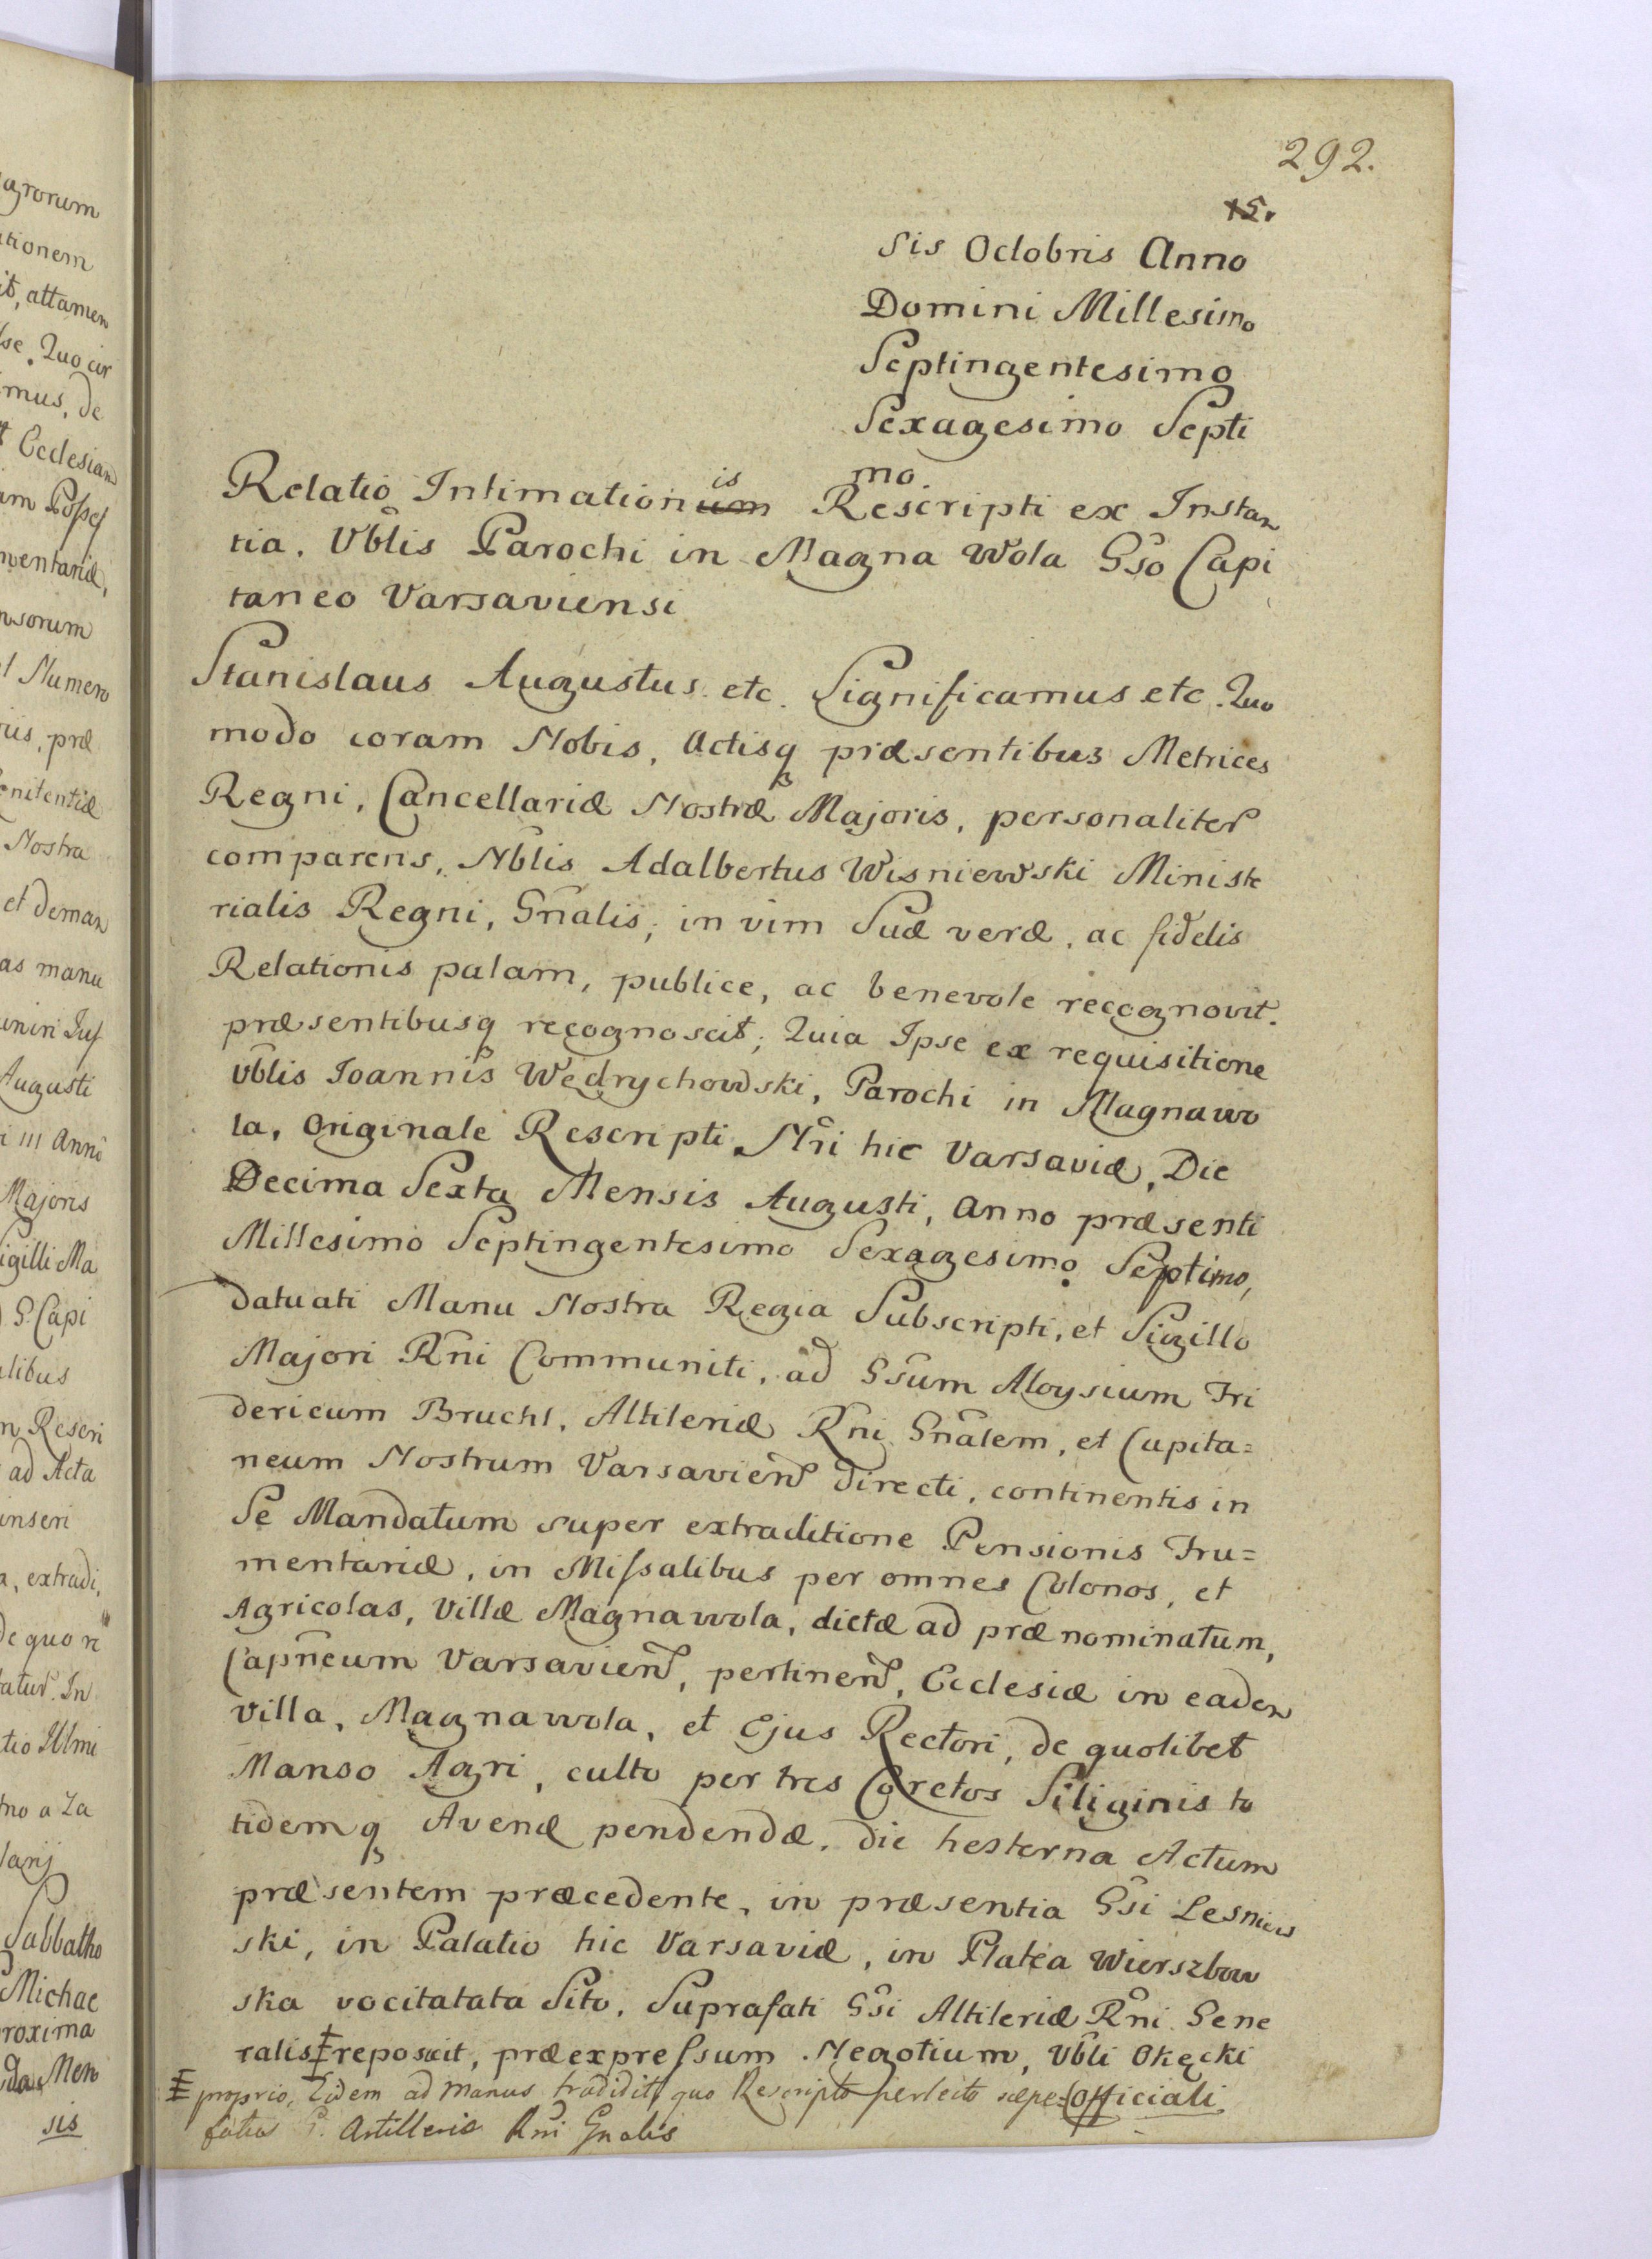 292.
15.
sis Octobris Anno
Domini Millesimo
Septingentesimo
Sexagesimo Septi
mo.
Relatio Intimationum is Rescripti ex Instan
tia. Vblis Parochi in Magna Wola Gso Capi
taneo Varsaviensi
Stanislaus Augustus etc. Significamus etc. Quo
modo coram Nobis, Actisq præsentibus Metrices
Regni, Cancellariæ Nostræ Majoris, personaliter
comparens, Nblis Adalbertus Wisniewski Ministe
rialis Regni, Gnalis, in vim Suæ veræ, ac fidelis
Relationis palam, publice, ac benevole recognovit.
præsentibusq recognoscit; Quia Ipse ex requisitione
Vblis Joannis Wędrychowski, Parochi in Magnawo
la, Originale Rescripti Nri hic Varsaviæ, Die
Decima Sexta Mensis Augusti, Anno præsenti
Millesimo Septingentesimo Sexagesimo Septimo,
datuati Manu Nostra Regia Subscripti, et Sigillo
Majori Rni Communiti, ad Gsum Aloysium Fri
dericum Bruchl, Altileriæ Rni Gnalem, et Capita=
neum Nostrum Varsavien directi, continentis in
Se Mandatum super extraditione Pensionis Fru=
mentariæ, in Missalibus per omnes Colonos, et
Agricolas, Villæ Magnawola, dictæ ad prænominatum,
Capneum Varsavien, pertinen, Ecclesiæ in eadem
Villa, Magnawola, et Ejus Rectori, de quolibet
Manso Agri, culto per tres Coretos Siliginis to
tidemq Avenæ pendendæ, die hesterna Actum
præsentem præcedente, in præsentia Gsi Lesniews
ski, in Palatio hic Varsaviæ, in Platea Wierszbow
ska vocitatata Sito, Suprafati Gsi Altileriæ Rni Gene
ralis reposuit, præexpressum Negotium, Vbli Okęcki
proprio, Eidem ad manus tradidit, quo Rescripto perlecto sæpe= Officiali
fatus G. Artilleriæ Rni Gnalis